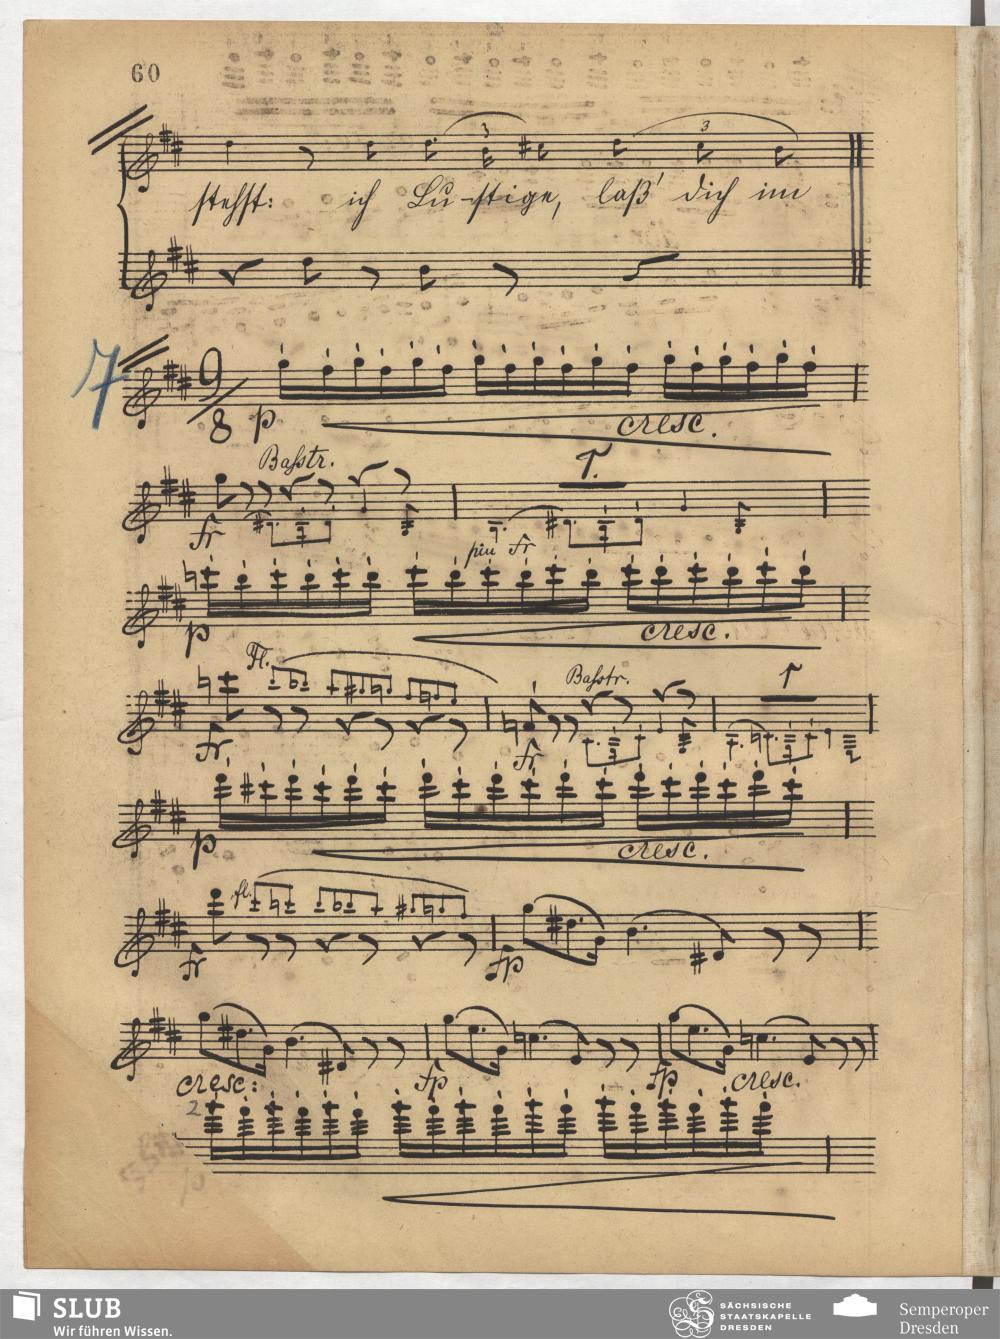 60
3 3
stehst: ich Lu-stige, laß' dich im
7
9
8 p cresc.
Baßtr. 1.
fr
più fr
p cresc.
Fl. Baßtr. 1
fr fr
p cresc.
fl.
fr fp
cresc: fp fp cresc.
2
SLUB
Wir führen Wissen.
SÄCHSISCHE
STAATSKAPELLE
DRESDEN
Semperoper
Dresden